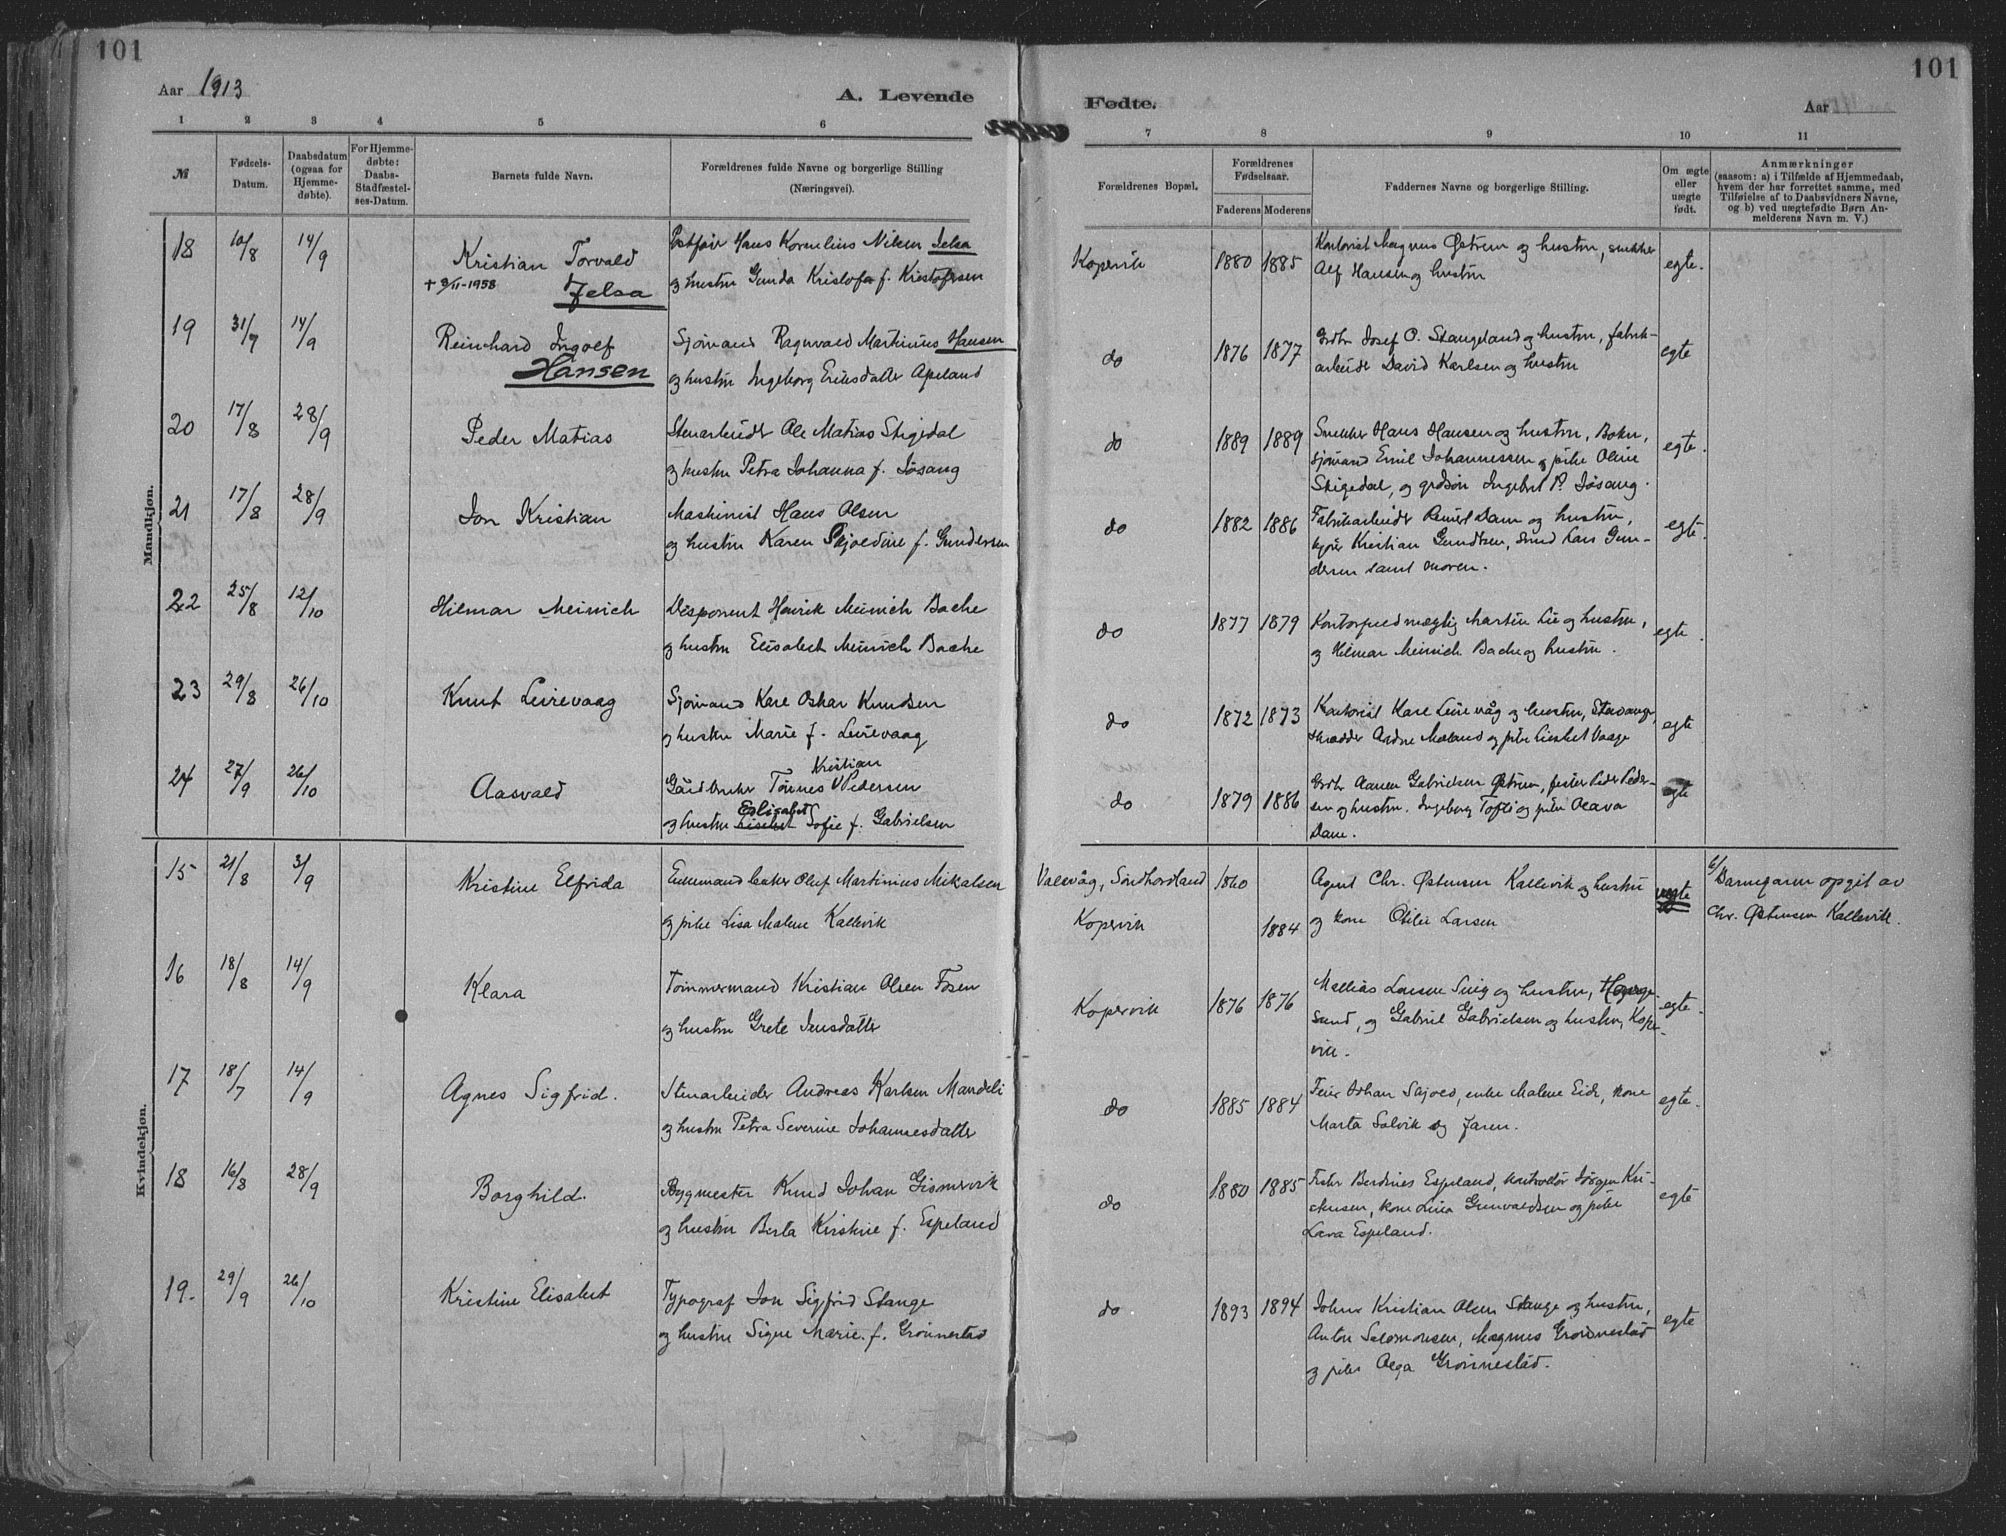 101
101
Aar 1913
A. Levende
Fødte.
Aar
1 2 3 4 5 6 7 8 9 10 11
№
Fødsels-Datum.
Daabsdatum (ogsaa for Hjemme-døbte).
For Hjemme-døbte: Daabs-Stadfæstel-ses-Datum.
Barnets fulde Navn.
Forældrenes fulde Navne og borgerlige Stilling (Næringsvei).
Forældrenes Bopæl.
Forældrenes Fødselsaar.
Faderens Moderens
Faddernes Navne og borgerlige Stilling.
Om ægte eller uægte født.
Anmærkninger
(saasom: a) i Tilfælde af Hjemmedaab,
hvem der har forrettet samme, med
Tilføielse af to Daabsvidners Navne,
og b) ved uægtefødte Børn An-
melderens Navn m. V.)
Mandkjøn.
18 10/8 14/9 Kristian Torvald Hans Kornelius Nilsen Jelsa Kopervik 1880 1885 Kontorist Magnus Østrem og hustru, snekker
+ 9/11-1958 Jelsa og hustru Gunda Kristofa f. Kristofersen Alf Hansen og hustru egte.
19 31/7 14/9 Reinhard Ingolf Sjømand Ragnvald Martinius Hansen do 1876 1877 Grdbr Josef O. Stangeland og hustru, fabrik-
Hansen og hustru Ingeborg Eriksdatter Apeland arbeider David Karlsen og hustru egte
20 17/8 28/9 Peder Matias Stenarbeider Ole Matias Stigedal do 1889 1889 Snekker Hans Hansen og hustru, Bokn,
og hustru Petra Johanna f. Jøsang sjømand Emil Johannessen og pike Oline egte.
Stigedal, og grdsøn Ingebret P. Jøsang.
21 17/8 28/9 Jon Kristian Maskinist Hans Olsen do 1882 1886 Fabrikarbeider Dane og hustru,
og hustru Karen Skjoldine f. Gundersen Kristian Gundersen, Lars Gun- egte.
dersen samt moren.
22 25/8 12/10 Hilmar Meinich Disponent Henrik Meinich Bache do 1877 1879 Kontorfuldmægtig Martin Lie og hustru,
og hustru Elisabeth Meinich Bache og Hilmar Meinich Bache og hustru. egte.
23 29/8 26/10 Knut Leirevaag Sjømand Karl Oskar Knudsen do 1872 1873 Kontorist Karl Leirevåg og hustru, Stavanger,
og hustru Marie f. Leirevaag skrædder Andre Mæland og pike Lisabet Vaage egte
24 27/9 26/10 Aasvald Gårdbruker Tønnes Kristian Pedersen do 1879 1886 Grdbr Aanen Gabrielsen Østrem, fisker Peder Peder-
og hustru Elisabet Sofie f. Gabrielsen sen og hustru. Ingeborg Tofte og pike Olava egte
Dane.
Kvindekjøn.
15 21/8 3/9 Kristine Elfrida Enkemand Oluf Martinius Mikalsen Valevåg, Søndhordland 1860 Agent Chr. Østensen Kallevik og hustru uegte Barnefaren opgit av
og pike Lisa Malene Kallevik Kopervik 1884 og kone Otilie Larsen Chr. Østensen Kallevik.
16 18/8 14/9 Klara Tømmermand Kristian Olsen Fosen Kopervik 1876 1876 Mathias Larsen og hustru, Hauge-
og hustru Grete Jensdatter sund, og Gabriel Gabrielsen og hustru, Koper- egte.
vik.
17 18/7 14/9 Agnes Sigfrid. Stenarbeider Andreas Karlsen Mandeli do 1885 1884 Feier Johan Skjold, enke Malene Eide, kone
og hustru Petra Severine Johannesdatter Marta Salvik og faren. egte.
18 16/8 28/9 Borghild. Bygmester Knud Johan Gismervik do 1880 1885 Fisker Berdines Espeland, kontrollør Jørgen Kri-
og hustru Berta Kirstine f. Espeland stensen, kone Lina Gunvaldsen og pike egte
Lava Espeland.
19. 29/9 26/10 Kristine Elisabet Typograf Jon Sigfrid Stange do 1893 1894 Johns Kristian Olsen Stange og hustru,
og hustru Signe Marie f. Grønnestad Anton Salomonsen, Magnus Grønnestad egte
og pike Olga Grønnestad.